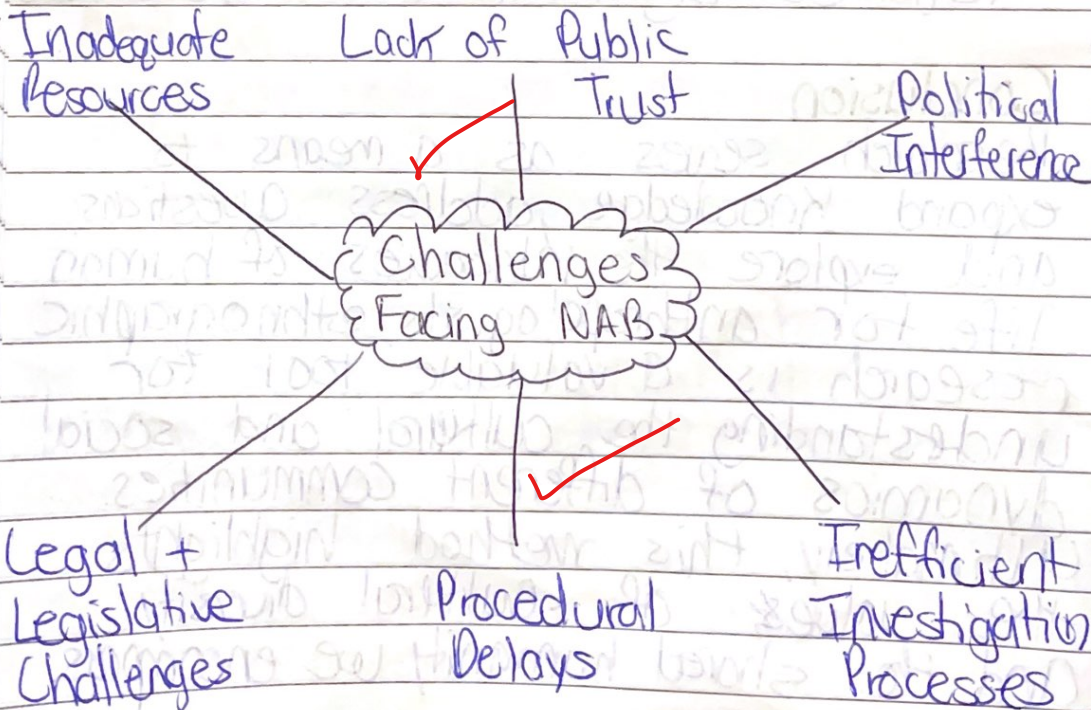 Inadequate
Resources
Lack of Public
Trust
Political
Interference
Challenges
Facing NAB
Legal +
Legislative
Challenges
Procedural
Delays
Inefficient
Investigation
Processes